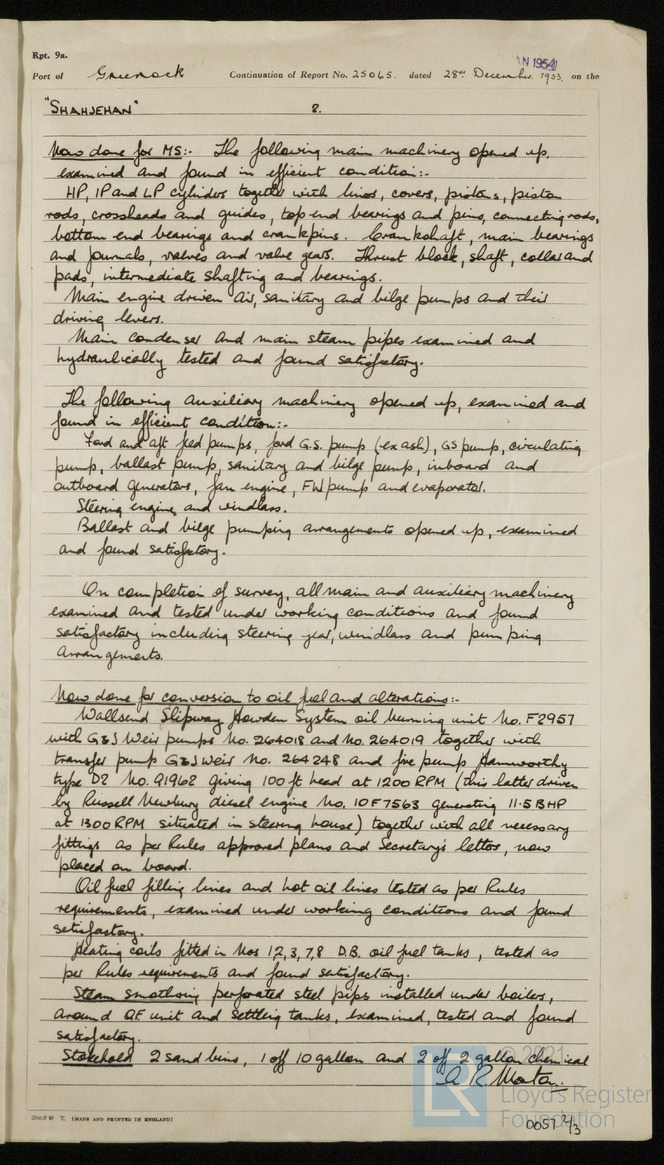 Rpt. 9a.
JAN 1954
Port of Greenock Continuation of Report No. 25065. dated 28th December. 1953 on the
"SHAHJEHAN" 2.
Now done for MS:- The following main machinery opened up,
examined and found in efficient condition:-
HP, IP and LP cylinders together with liners, covers, pistons, piston
rods, crossheads and guides, top end bearings and pins, connecting rods,
bottom end bearings and crankpins. Crankshaft, main bearings
and journals, valves and valve gears. Thrust block, shaft, collar and
pads, intermediate shafting and bearings.
Main engine driven air, sanitary and bilge pumps and their
driving levers.
Main condenser and main steam pipes examined and
hydraulically tested and found satisfactory.
The following auxiliary machinery opened up, examined and
found in efficient condition:-
Ford and aft feed pumps, ford G.S. pump (ex ash), GS pump, circulating
pump, ballast pump, sanitary and bilge pump, inboard and
outboard generators, fan engine, FW pump and evaporator.
Steering engine and windlass.
Ballast and bilge pumping arrangements opened up, examined
and found satisfactory.
On completion of survey, all main and auxiliary machinery
examined and tested under working conditions and found
satisfactory including steering gear, windlass and pumping
arrangements.
Now done for conversion to oil fuel and alterations:-
Wallsend Slipway Howden System oil burning unit No. F2957
with G&J Weir pumps No. 264018 and No. 264019 together with
transfer pump G&J Weir No. 264248 and fire pump Hamworthy
type D2 No. 91962 giving 100 ft head at 1200 RPM (this latter driven
by Russell Newbury diesel engine No. 10F7563 generating 11.5 BHP
at 1300 RPM situated in steering house) together with all necessary
fittings as per Rules approved plans and Secretary's letter, now
placed on board.
Oil fuel filling lines and hot oil lines tested as per Rules
requirements, examined under working conditions and found
satisfactory.
Heating coils fitted in Nos 1,2,3,7,8 D.B. oil fuel tanks, tested as
per Rules requirements and found satisfactory.
Steam smothering perforated steel pipes installed under boilers,
around OF unit and settling tanks, examined, tested and found
satisfactory.
Stokehold 2 sand bins, 1 off 10 gallon and 2 off 2 gallon chemical
A R Morton.
© 2021
LR
Lloyd's Register
Foundation
T. (MADE AND PRINTED IN ENGLAND)
0057 2/3